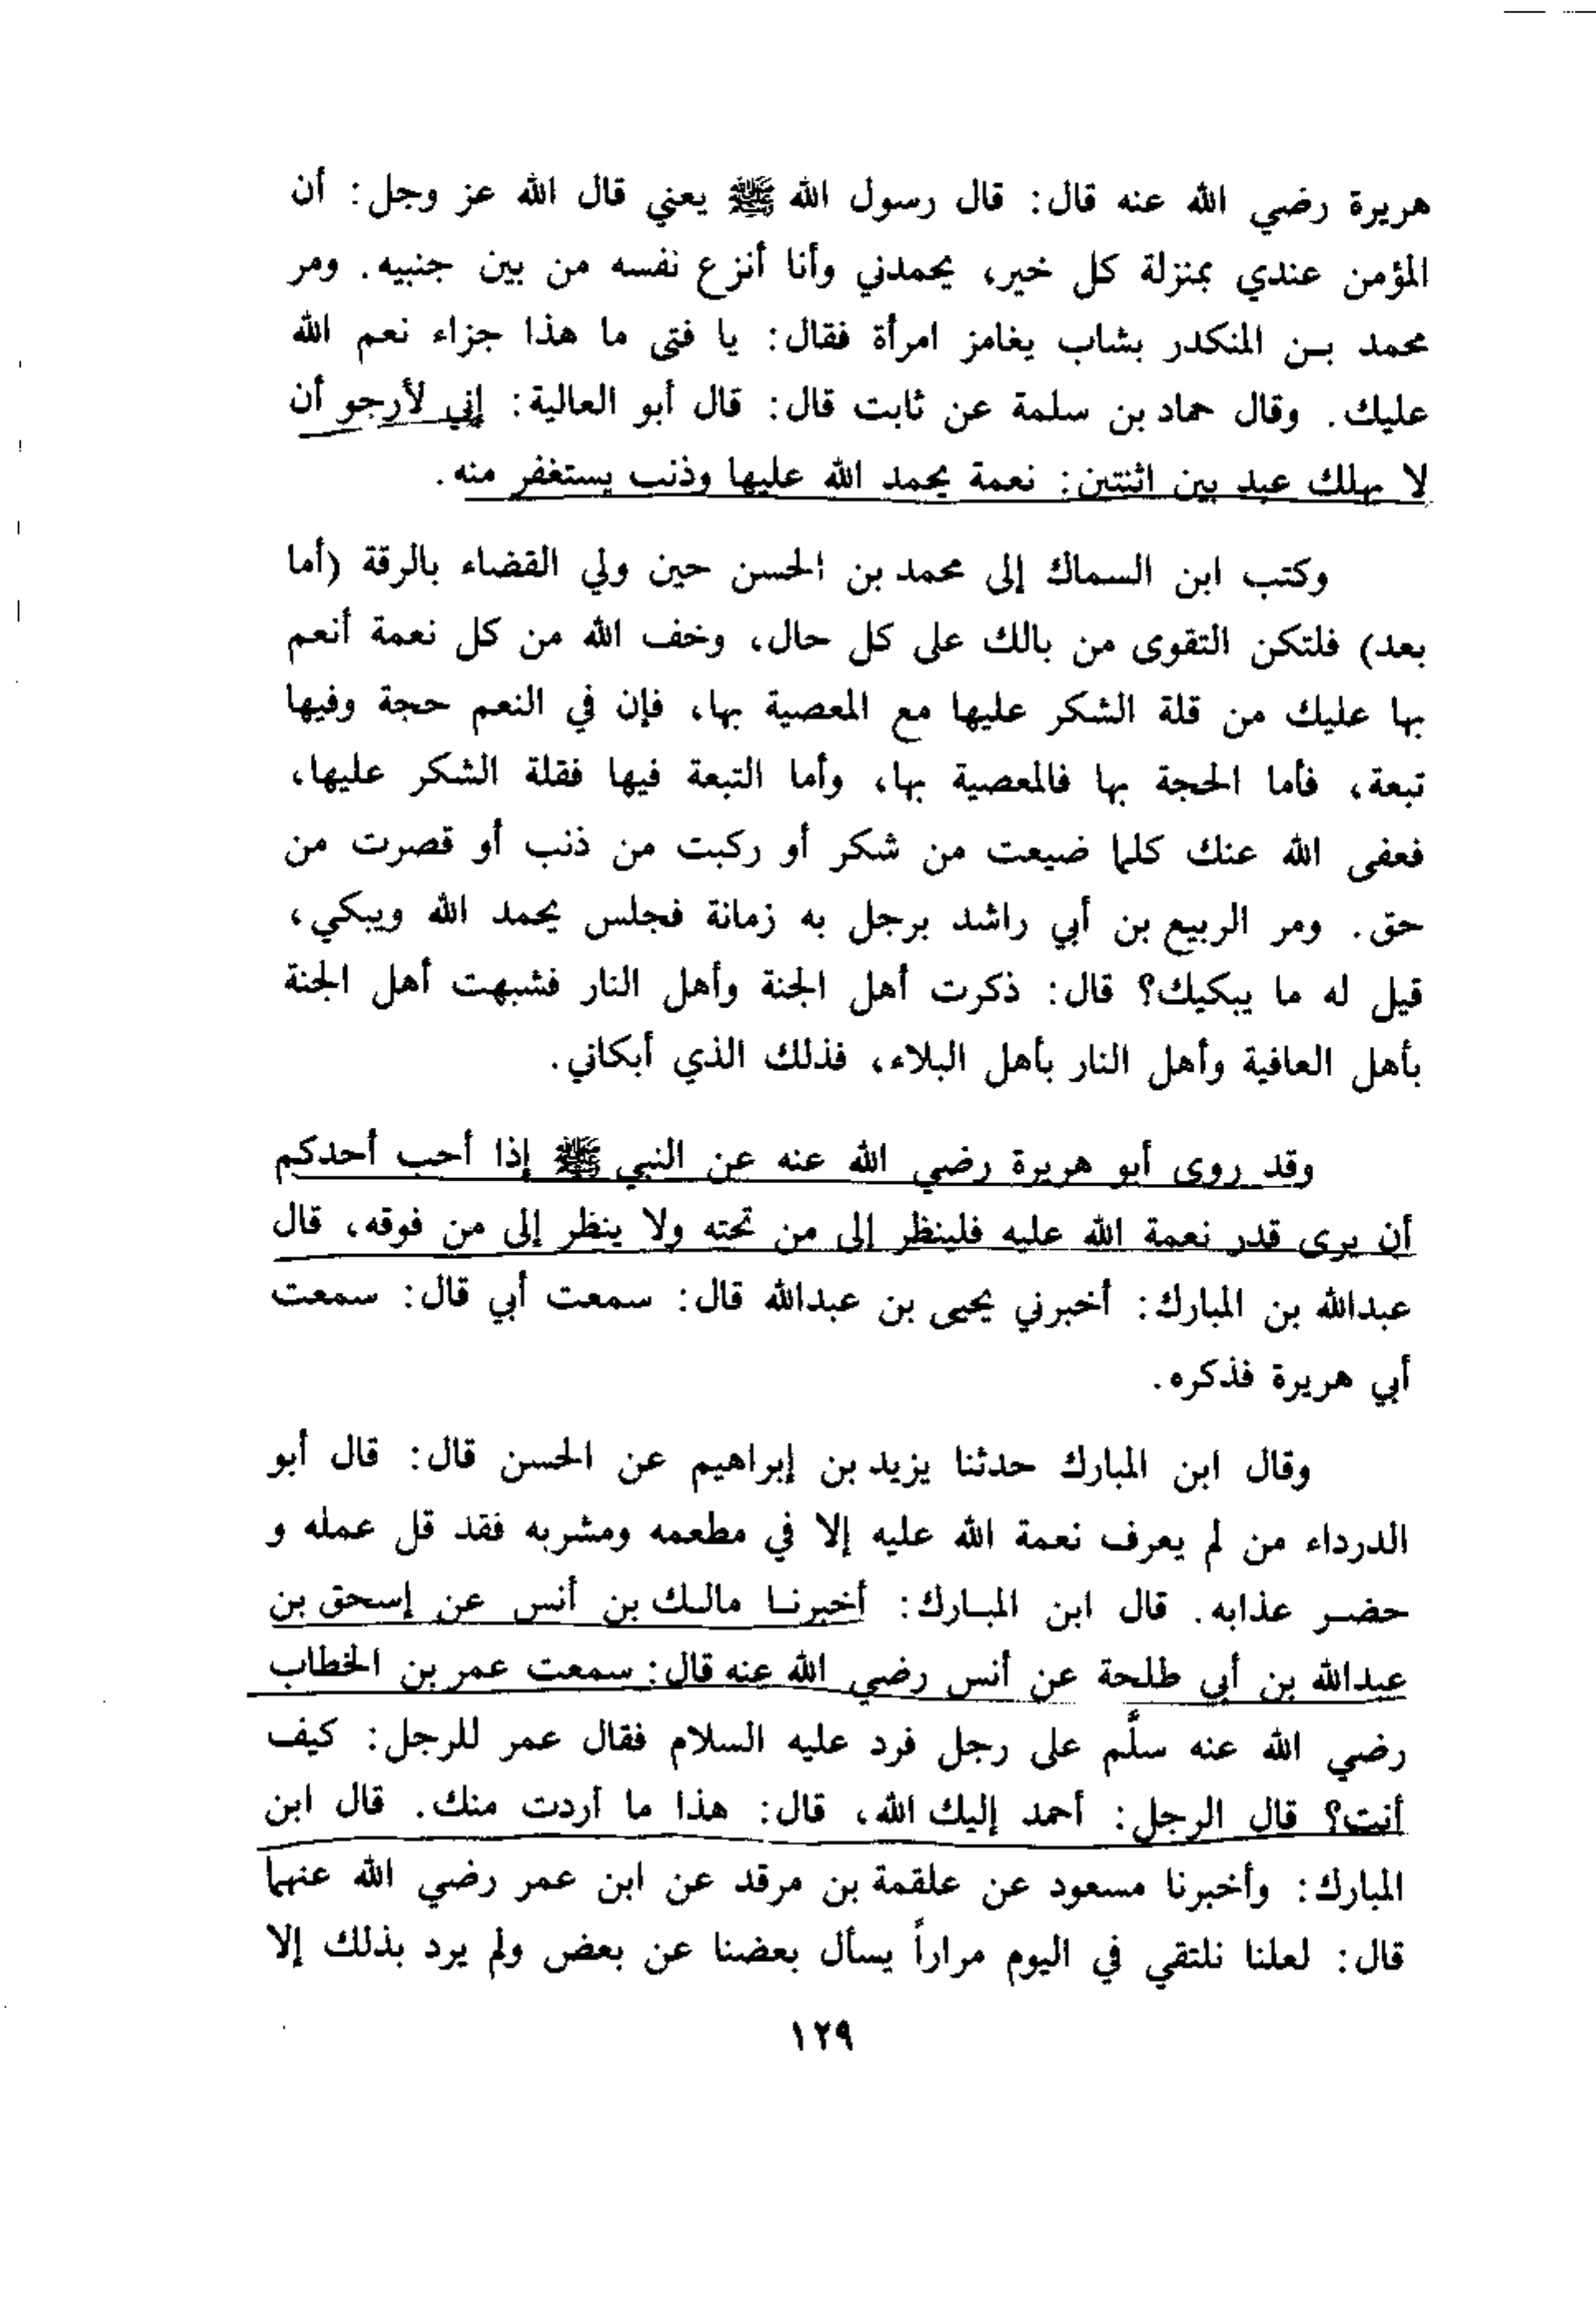 هريرة رضي الله عنه قال: قال رسول الله ﷺ يعني قال الله عز وجل: أن
المؤمن عندي بمنزلة كل خير، يحمدني وأنا أنزع نفسه من بين جنبيه. ومر
محمد بن المنكدر بشاب يغامز امرأة فقال: يا فتى ما هذا جزاء نعم الله
عليك. وقال حماد بن سلمة عن ثابت قال: قال أبو العالية: إني لأرجو أن
لا يهلك عبد بين اثنتين: نعمة يحمد الله عليها وذنب يستغفر منه.
وكتب ابن السماك إلى محمد بن الحسن حين ولي القضاء بالرقة (أما
بعد) فلتكن التقوى من بالك على كل حال، وخف الله من كل نعمة أنعم
بها عليك من قلة الشكر عليها مع المعصية بها، فإن في النعم حجة وفيها
تبعة، فأما الحجة بها فالمعصية بها، وأما التبعة فيها فقلة الشكر عليها،
فعفى الله عنك كلما ضيعت من شكر أو ركبت من ذنب أو قصرت من
حق. ومر الربيع بن أبي راشد برجل به زمانة فجلس يحمد الله ويبكي،
قيل له ما يبكيك؟ قال: ذكرت أهل الجنة وأهل النار فشبهت أهل الجنة
بأهل العافية وأهل النار بأهل البلاء، فذلك الذي أبكاني.
وقد روى أبو هريرة رضي الله عنه عن النبي ﷺ إذا أحب أحدكم
أن يرى قدر نعمة الله عليه فلينظر إلى من تحته ولا ينظر إلى من فوقه، قال
عبدالله بن المبارك: أخبرني يحيى بن عبدالله قال: سمعت أبي قال: سمعت
أبي هريرة فذكره.
وقال ابن المبارك حدثنا يزيد بن إبراهيم عن الحسن قال: قال أبو
الدرداء من لم يعرف نعمة الله عليه إلا في مطعمه ومشربه فقد قل عمله و
حضر عذابه. قال ابن المبارك: أخبرنا مالك بن أنس عن إسحق بن
عبدالله بن أبي طلحة عن أنس رضي الله عنه قال: سمعت عمر بن الخطاب
رضي الله عنه سلَّم على رجل فرد عليه السلام فقال عمر للرجل: كيف
أنت؟ قال الرجل: أحمد إليك الله، قال: هذا ما أردت منك. قال ابن
المبارك: وأخبرنا مسعود عن علقمة بن مرقد عن ابن عمر رضي الله عنهما
قال: لعلنا نلتقي في اليوم مراراً يسأل بعضنا عن بعض ولم يرد بذلك إلا
١٢٩